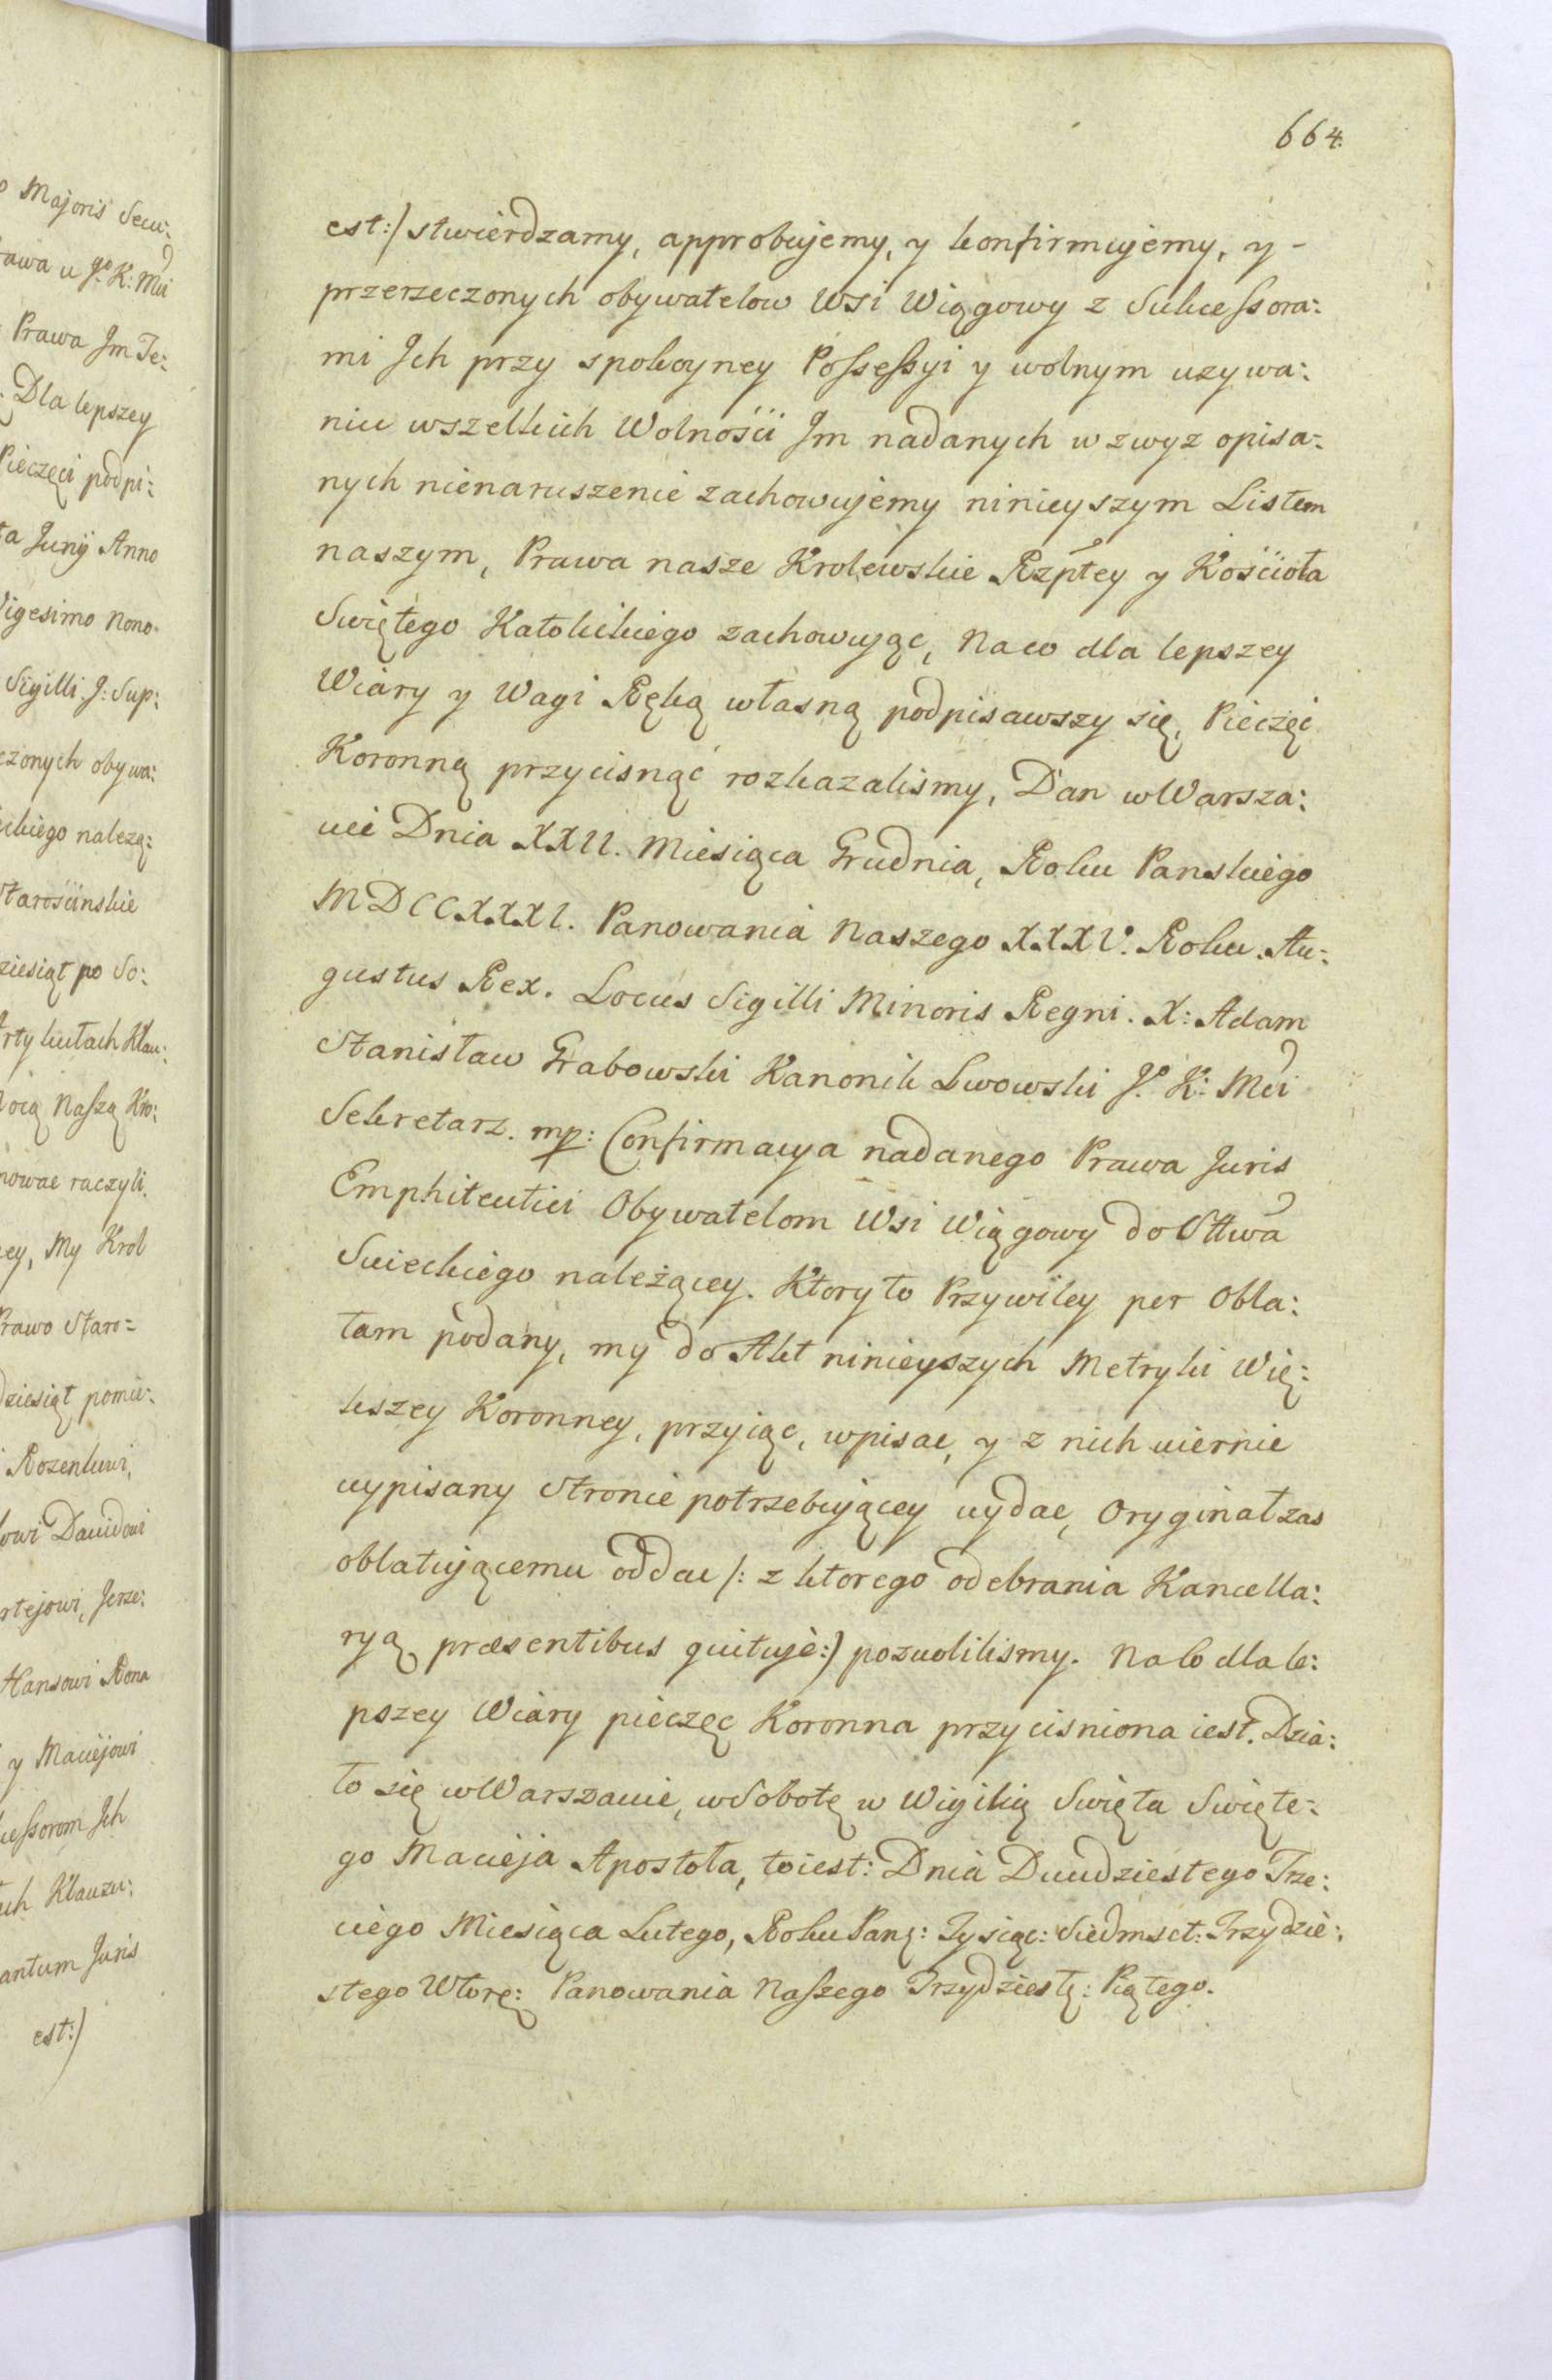 o Majoris Secu:
rawa u Jgo K: Mci
Prawa Jm Te:
Dla lepszey
Pieczęci podpi:
ta Junij Anno
Vigesimo Nono.
Sigilli J: Sup:
czonych obywa:
ckiego należą:
Starościnskie
ziesiąt po So:
Arty kułach Klau:
ocą Naszą Kro:
nowac raczyli.
ey, My Krol
Prawo Staro=
dziesiąt pomie:
Rozenkwi,
owi Dawidowi
rtejowi, Jerze:
Hansowi Rona
y Maciejowi
cessorom Jch
ch Klauzu:
antum Juris
est:)
664.
est:) stwierdzamy, approbujemy, y konfirmujemy, y -
przerzeczonych obywatelow Wsi Wiągowy z Sukcessora:
mi Jch przy spokoyney Possessyi y wolnym uzywa:
niu wszelkich Wolności Jm nadanych w zwyz opisa:
nych nienaruszenie zachowujemy ninieyszym Listem
naszym, Prawa nasze Krolewskie Rzptey y Kościoła
Swiętego Katolickiego zachowując, Na co dla lepszey
Wiary y Wagi Ręką własną podpisawszy się, Pieczęć
Koronną przycisnąć rozkazalismy, Dan w Warsza:
wie Dnia XXII. Miesiąca Grudnia, Roku Panskiego
MDCCXXXI. Panowania Naszego XXXV. Roku. Au:
gustus Rex. Locus Sigilli Minoris Regni. X: Adam
Stanisław Grabowski Kanonik Lwowski J. K: Mci
Sekretarz. mp: Confirmacya nadanego Prawa Juris
Emphiteutici Obywatelom Wsi Wiągowy do Sttwa
Swieckiego należącey. Ktory to Przywiley per Obla:
tam podany, my do Akt ninieyszych Metryki Wię:
kszey Koronney, przyiąc, wpisac, y z nich wiernie
wypisany Stronie potrzebującey wydac, Oryginał zas
oblatującemu oddac /: z ktorego odebrania Kancella:
ryą præsentibus quituje:) pozwolilismy. Na Co dla le:
pszey Wiary pieczęc Koronna przycisniona iest. Dzia:
ło się w Warszawie, w Sobotę w Wigilią Swięta Swięte:
go Macieja Apostoła, to iest: Dnia Dwudziestego Trze:
ciego Miesiąca Lutego, Roku Panś: Tysiąc: Siedmset: Trzydzie:
stego Wtorę: Panowania Naszego Trzydziestę: Piątego.